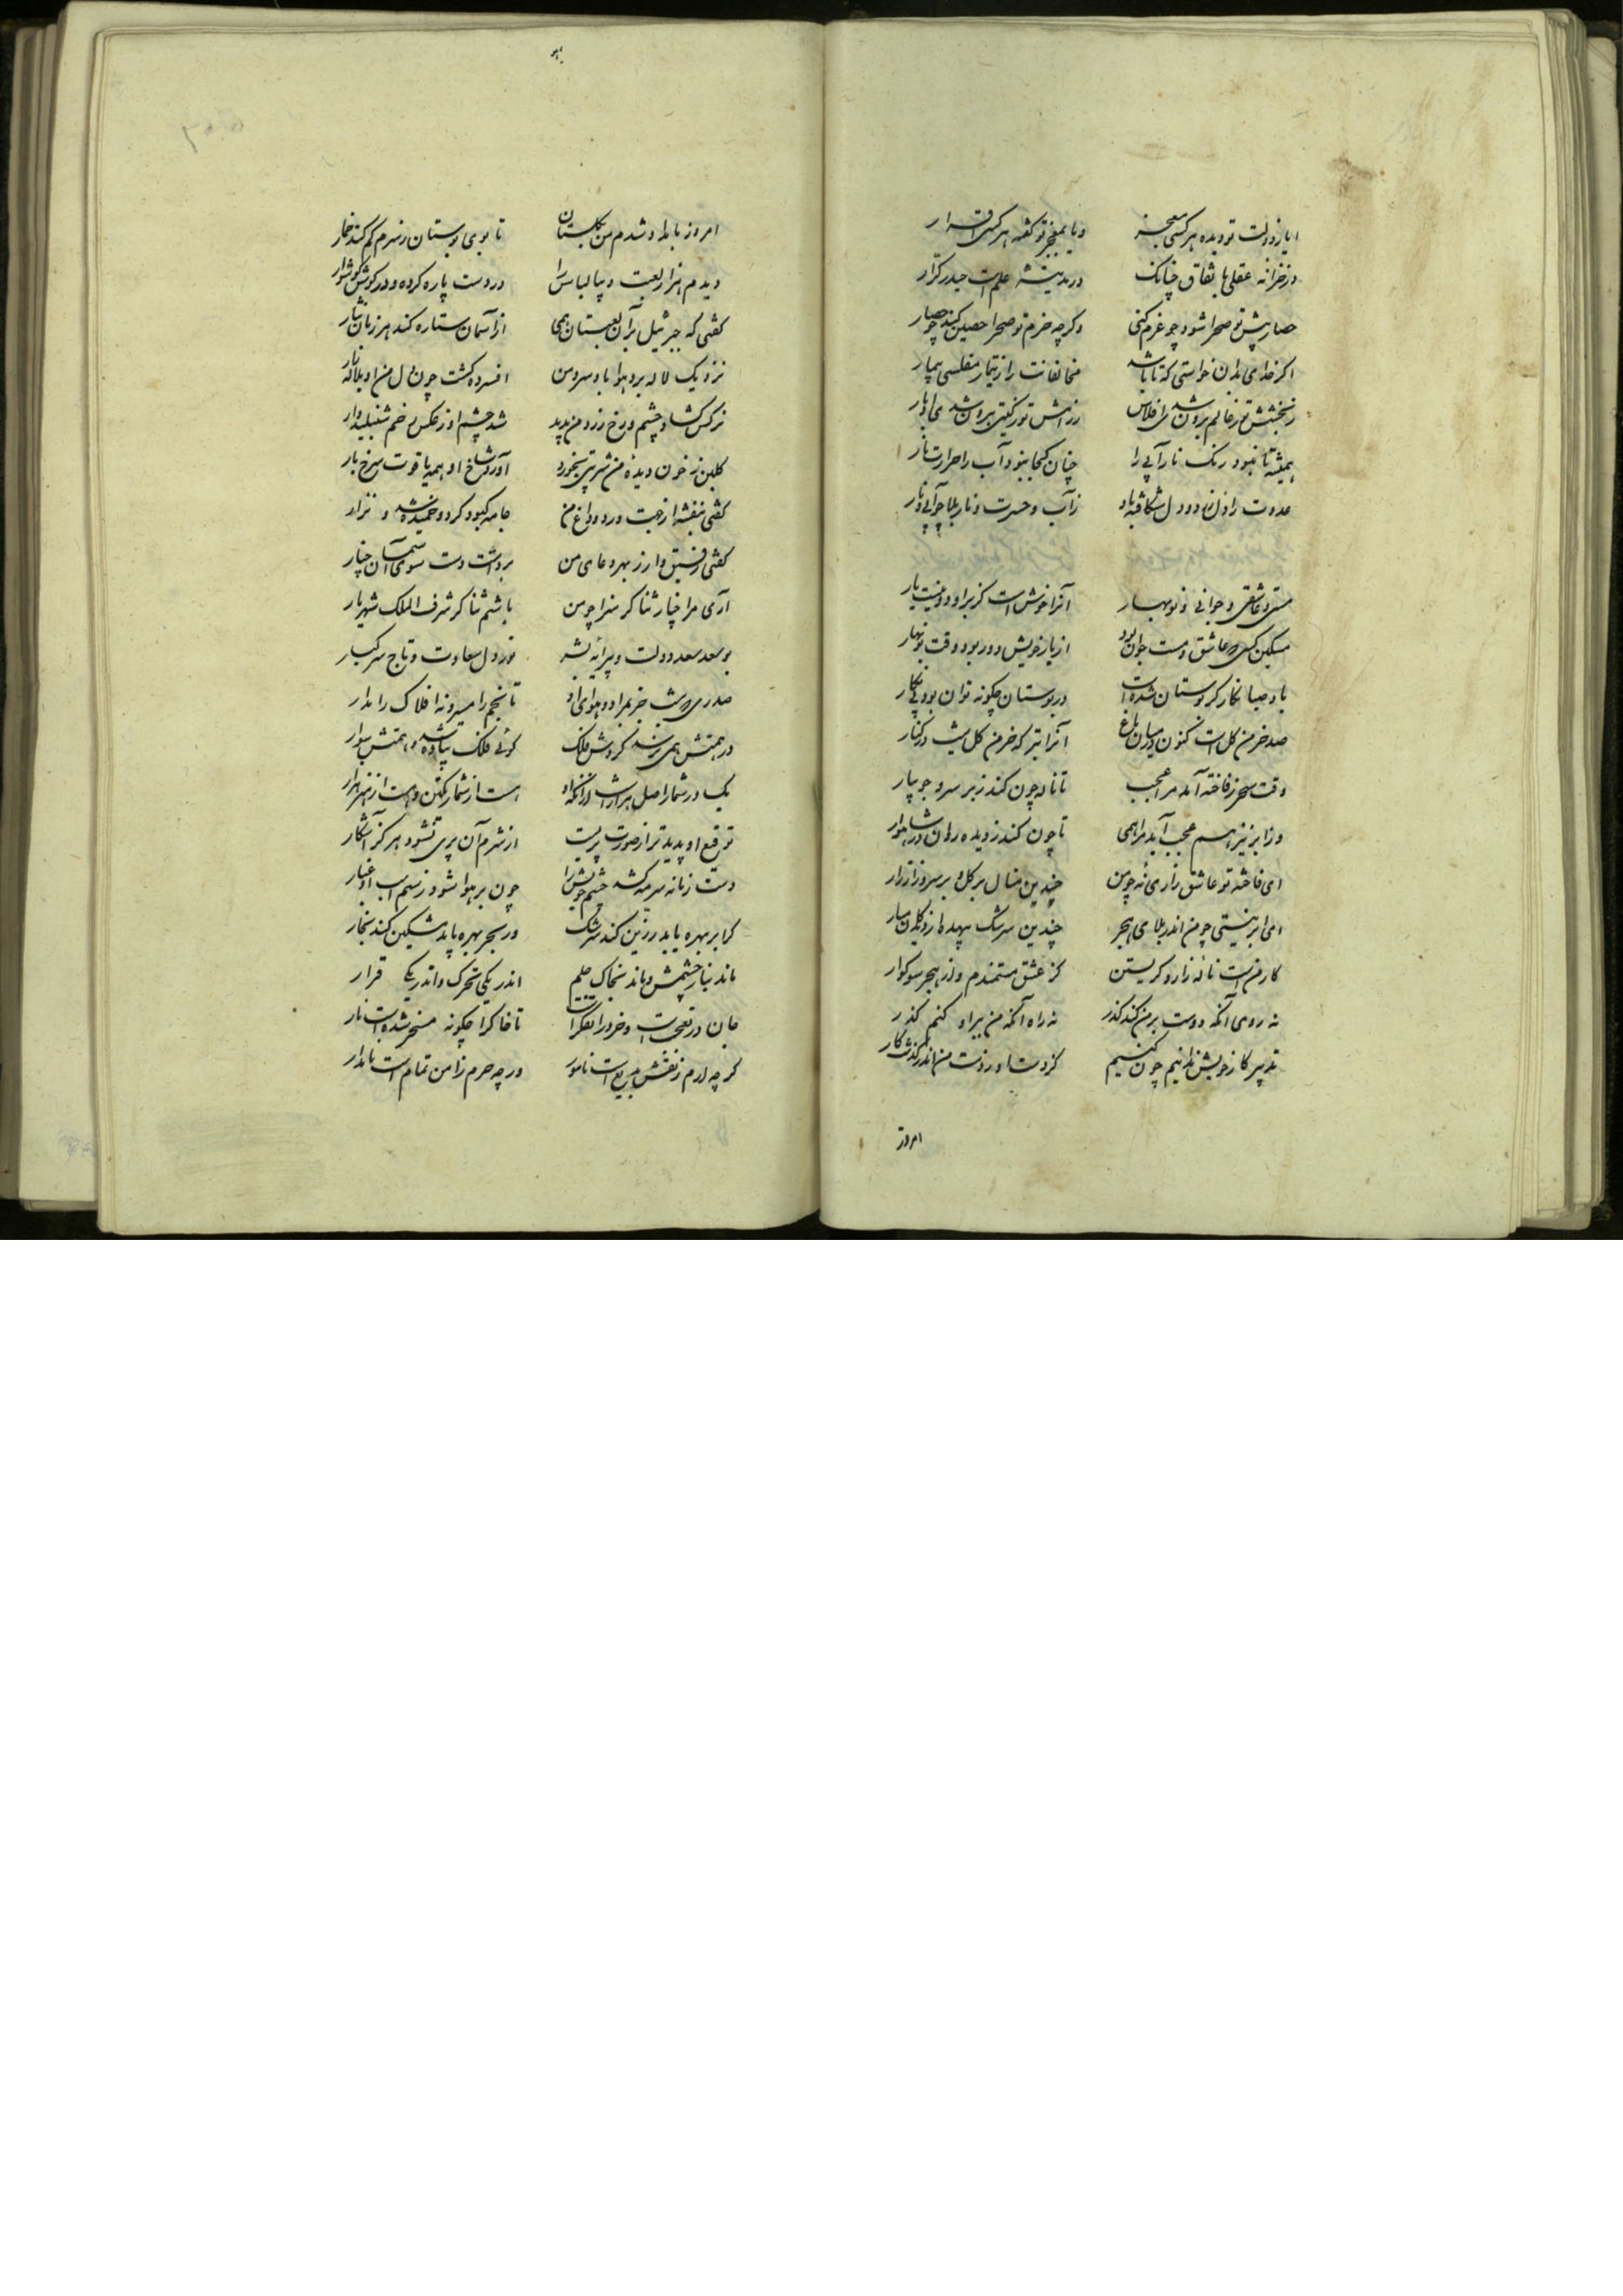 ایا ز دولت تو دیده هر کسی معجز
و یا بمعجز تو گفته هر کسی اقرار
در خزانه عقلی باتفاق چنانک
در مدینهٔ علمست حیدر کرار
حصار پیش تو صحرا شود چو عزم کنی
وگرچه حزم تو صحرا حصین کند چو حصار
اگر خدای بدان خواستی که تا باشد
مخالفانت را ز تیمار مفلسی بیمار
ز بخشش تو ز عالم برون شدی افلاس
ز دانش تو ز گیتی برون شدی ادبار
همیشه تا نبود رنگ نار آبی را
چنان کجا نبود آب را حرارت نار
عدوت را دل و دو دل شکافته باد
ز آب و حسرت و نار بلا چو آبی و نار
مستی و عاشقی و جوانی و نوبهار
آنرا خوش است کز بر او دور نیست یار
مسکین کسی که عاشق و مست و جوان بود
از یار خویش دور بود وقت نوبهار
باد صبا نگارگر بوستان شده است
در بوستان چگونه توان بود بی نگار
صد خرمن گل است کنون در میان باغ
آنرا بتر که خرمن گل نیست در کنار
وقت سحر ز فاخته آید مرا عجب
تا ناله چون کند زبر سرو جویبار
وز ابر نیز هم عجب آید مرا همی
تا چون کند ز دیده روان در شاهوار
ای فاخته تو عاشق زاری نه چو من
چندین منال بر گل و بر سرو زار زار
ای ابر نیستی چو من اندر بلای هجر
چندین سرشک بیهده از دیدگان مبار
کار من است نالهٔ زار و گریستن
کز عشق مستمندم و از هجر سوگوار
نه روی آنکه دوست بر من کند گذر
نه راه آنکه من بر او کنم گذر
تدبیر کار خویش ندانیم چون کنیم
کز دست او ز دست من اندر گذشت کار
امروز
امروز بامداد شدم من بگلستان
تا بوی بوستان ز سرم کم کند خمار
دیدم هزار لعبت دیبا لباس را
در دست یاره کرده و در گوش گوشوار
گفتی که جبرئیل بر آن لعبتان همی
از آسمان ستاره کند هر زمان نثار
نزدیک لاله برد هوا باد سرد من
افسرده گشت چون دل من او بلاله زار
نرگس گشاد چشم و رخ زرد من بدید
شد چشم او ز عکس رخم شنبلیدوار
گلبن ز خون دیدهٔ من شربتی بخورد
آورد شاخ او همه یاقوت سرخ بار
گفتی بنفشه از جهت درد و داغ من
جامه کبود کرد و خمیده شد و نزار
گفتی رفیق وار ز بهر دعای من
برداشت دست سوی آسمان چنار
آری مرا چنار ثناگر سزا چو من
باشم ثناگر شرف الملک شهریار
بوسعد سعد دولت و پیرایهٔ بشر
نور دل سعادت و تاج سر کبار
صدری که داشت جز بمراد و هوای او
تا نجم را مسیر و نه افلاک را مدار
در همتش همی نرسد گردش فلک
گوئی فلک پیاده شد و همتش سوار
یک در شمار اصل هزار است زانکه او
هست از شمار یکتن و هست از هنر هزار
توقیع او پدیدتر از صورت پریست
از شرم آن پری نشود هرگز آشکار
دست زمانه سرمه کشد چشم خویش را
چون بر هوا شود ز سم اسب او غبار
گر ابر بهره یابد رزین کند سرشک
ور بحر بهره یابد مشکین کند بخار
ماند بنار خشمش و ماند بخاک حلم
اندر یکی تحرک و اندر یکی قرار
جان در تعجب است و خرد را تفکر است
تا خاک را چگونه مسخر شده است نار
گرچه ارم ز نقش بدیع است نامور
ورچه حرم ز امن تمام است نامدار